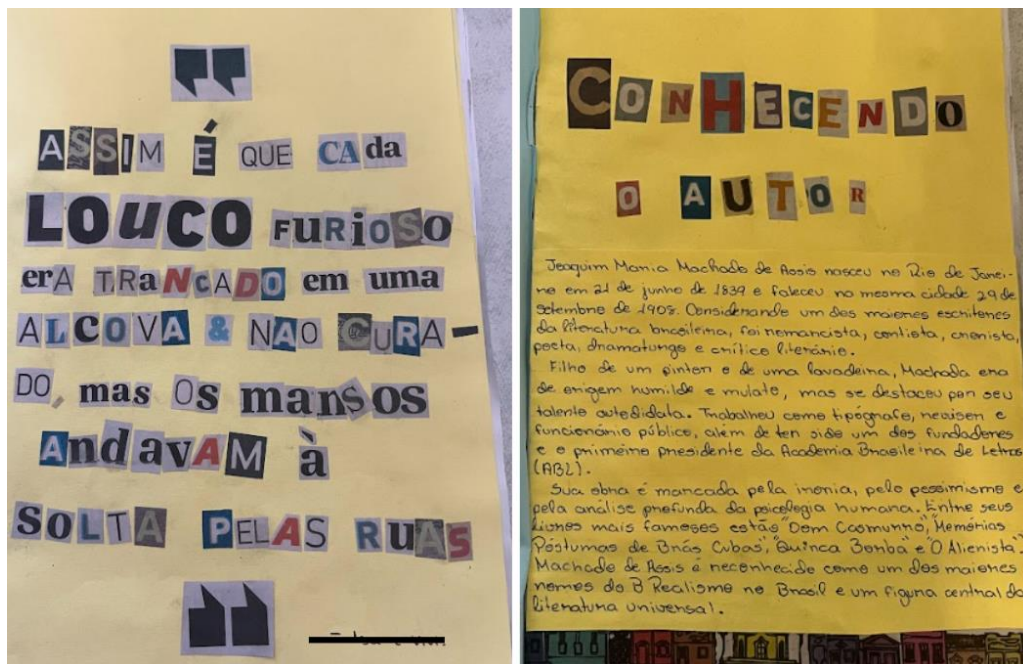 "
ASSIM É QUE CAda
LOUCO FURiOSO
erA TRANCADO em uma
ALCOVA & NAO CURA-
DO, mas OS mansos
AndavAM à
SOLTA PELAS RUAS
"
CONHECENDO
O AUTOR
Joaquim Maria Machado de Assis nasceu no Rio de Janei-
ro em 21 de junho de 1839 e faleceu na mesma cidade 29 de
setembro de 1908. Considerando um dos maiores escritores
da literatura brasileira, foi romancista, contista, cronista,
poeta, dramaturgo e crítico literário.
Filho de um pintor e de uma lavadeira, Machado era
de origem humilde e mulato, mas se destacou por seu
talento autodidata. Trabalhou como tipógrafo, revisor e
funcionário público, além de ter sido um dos fundadores
e o primeiro presidente da Academia Brasileira de Letras
(ABL).
Sua obra é marcada pela ironia, pelo pessimismo e
pela análise profunda da psicologia humana. Entre seus
livros mais famosos estão "Dom Casmurro", "Memórias
Póstumas de Brás Cubas", "Quinca Borba" e "O Alienista".
Machado de Assis é reconhecido como um dos maiores
nomes do B Realismo no Brasil e um figura central da
literatura universal.